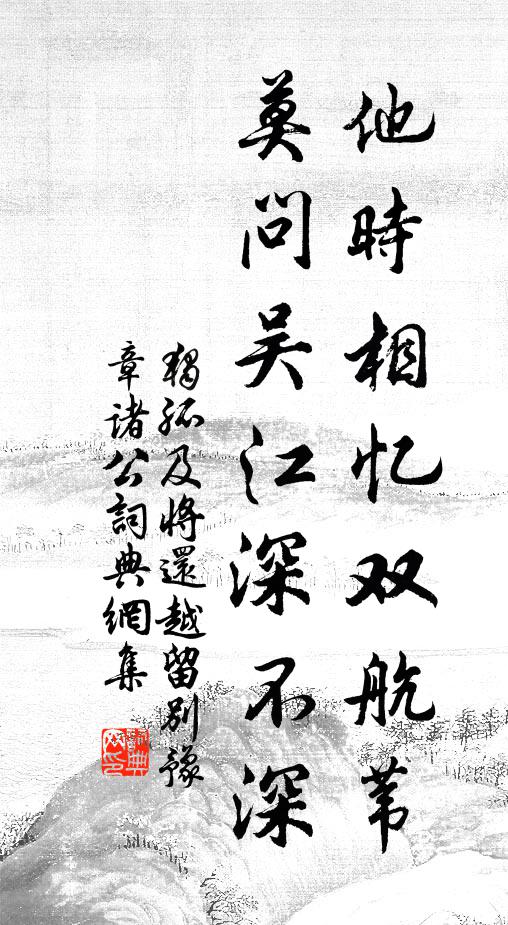 他時相忆双航苇
莫问吴江深不深
獨孤及將還越留别豫
章诸公詞典網集